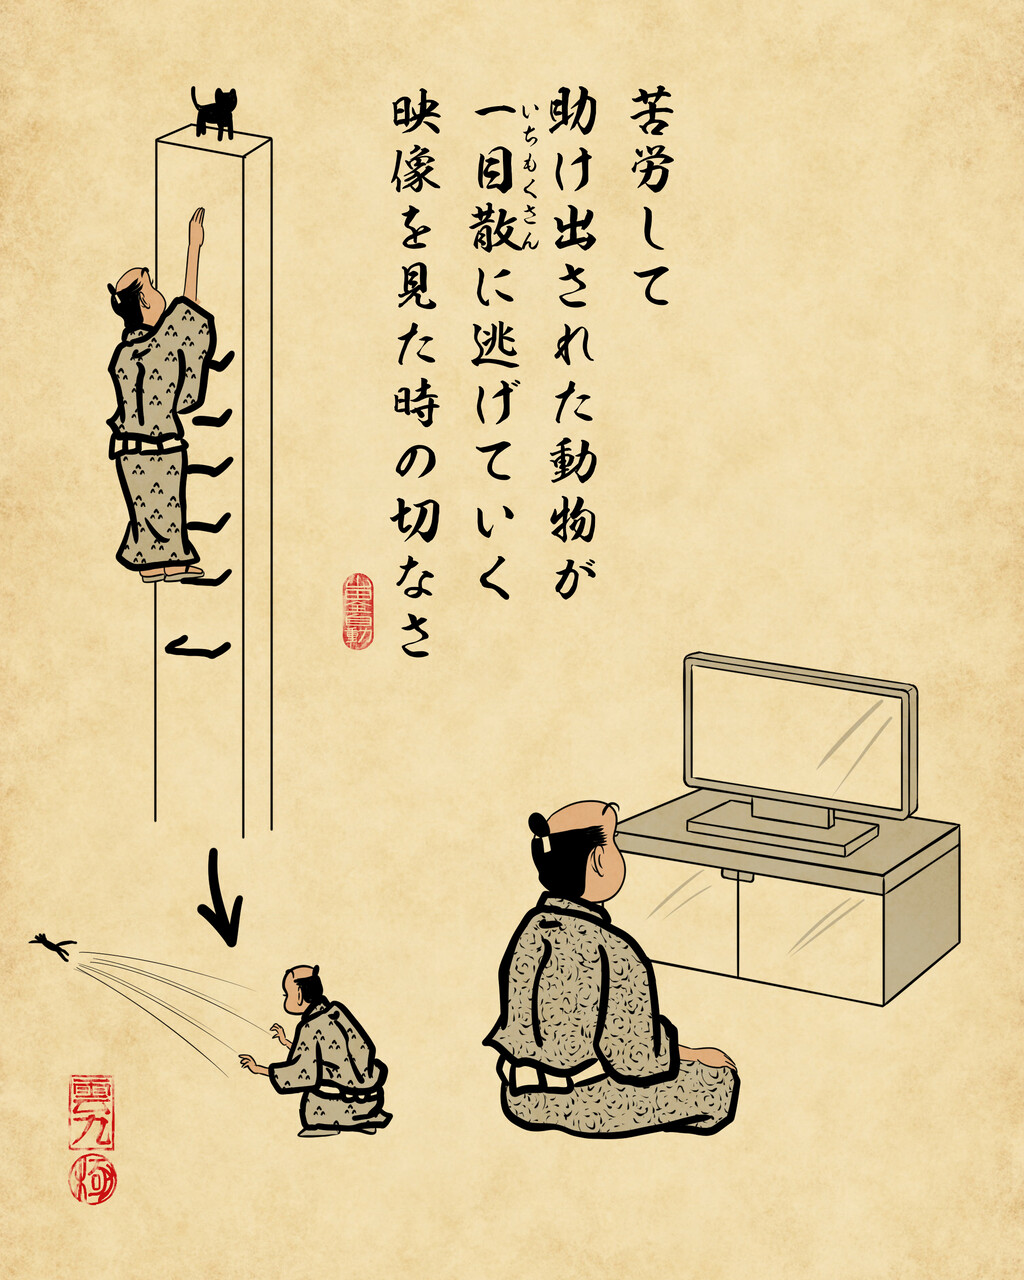 苦労して
助け出された動物が
一目散に逃げていく
いちもくさん
映像を見た時の切なさ